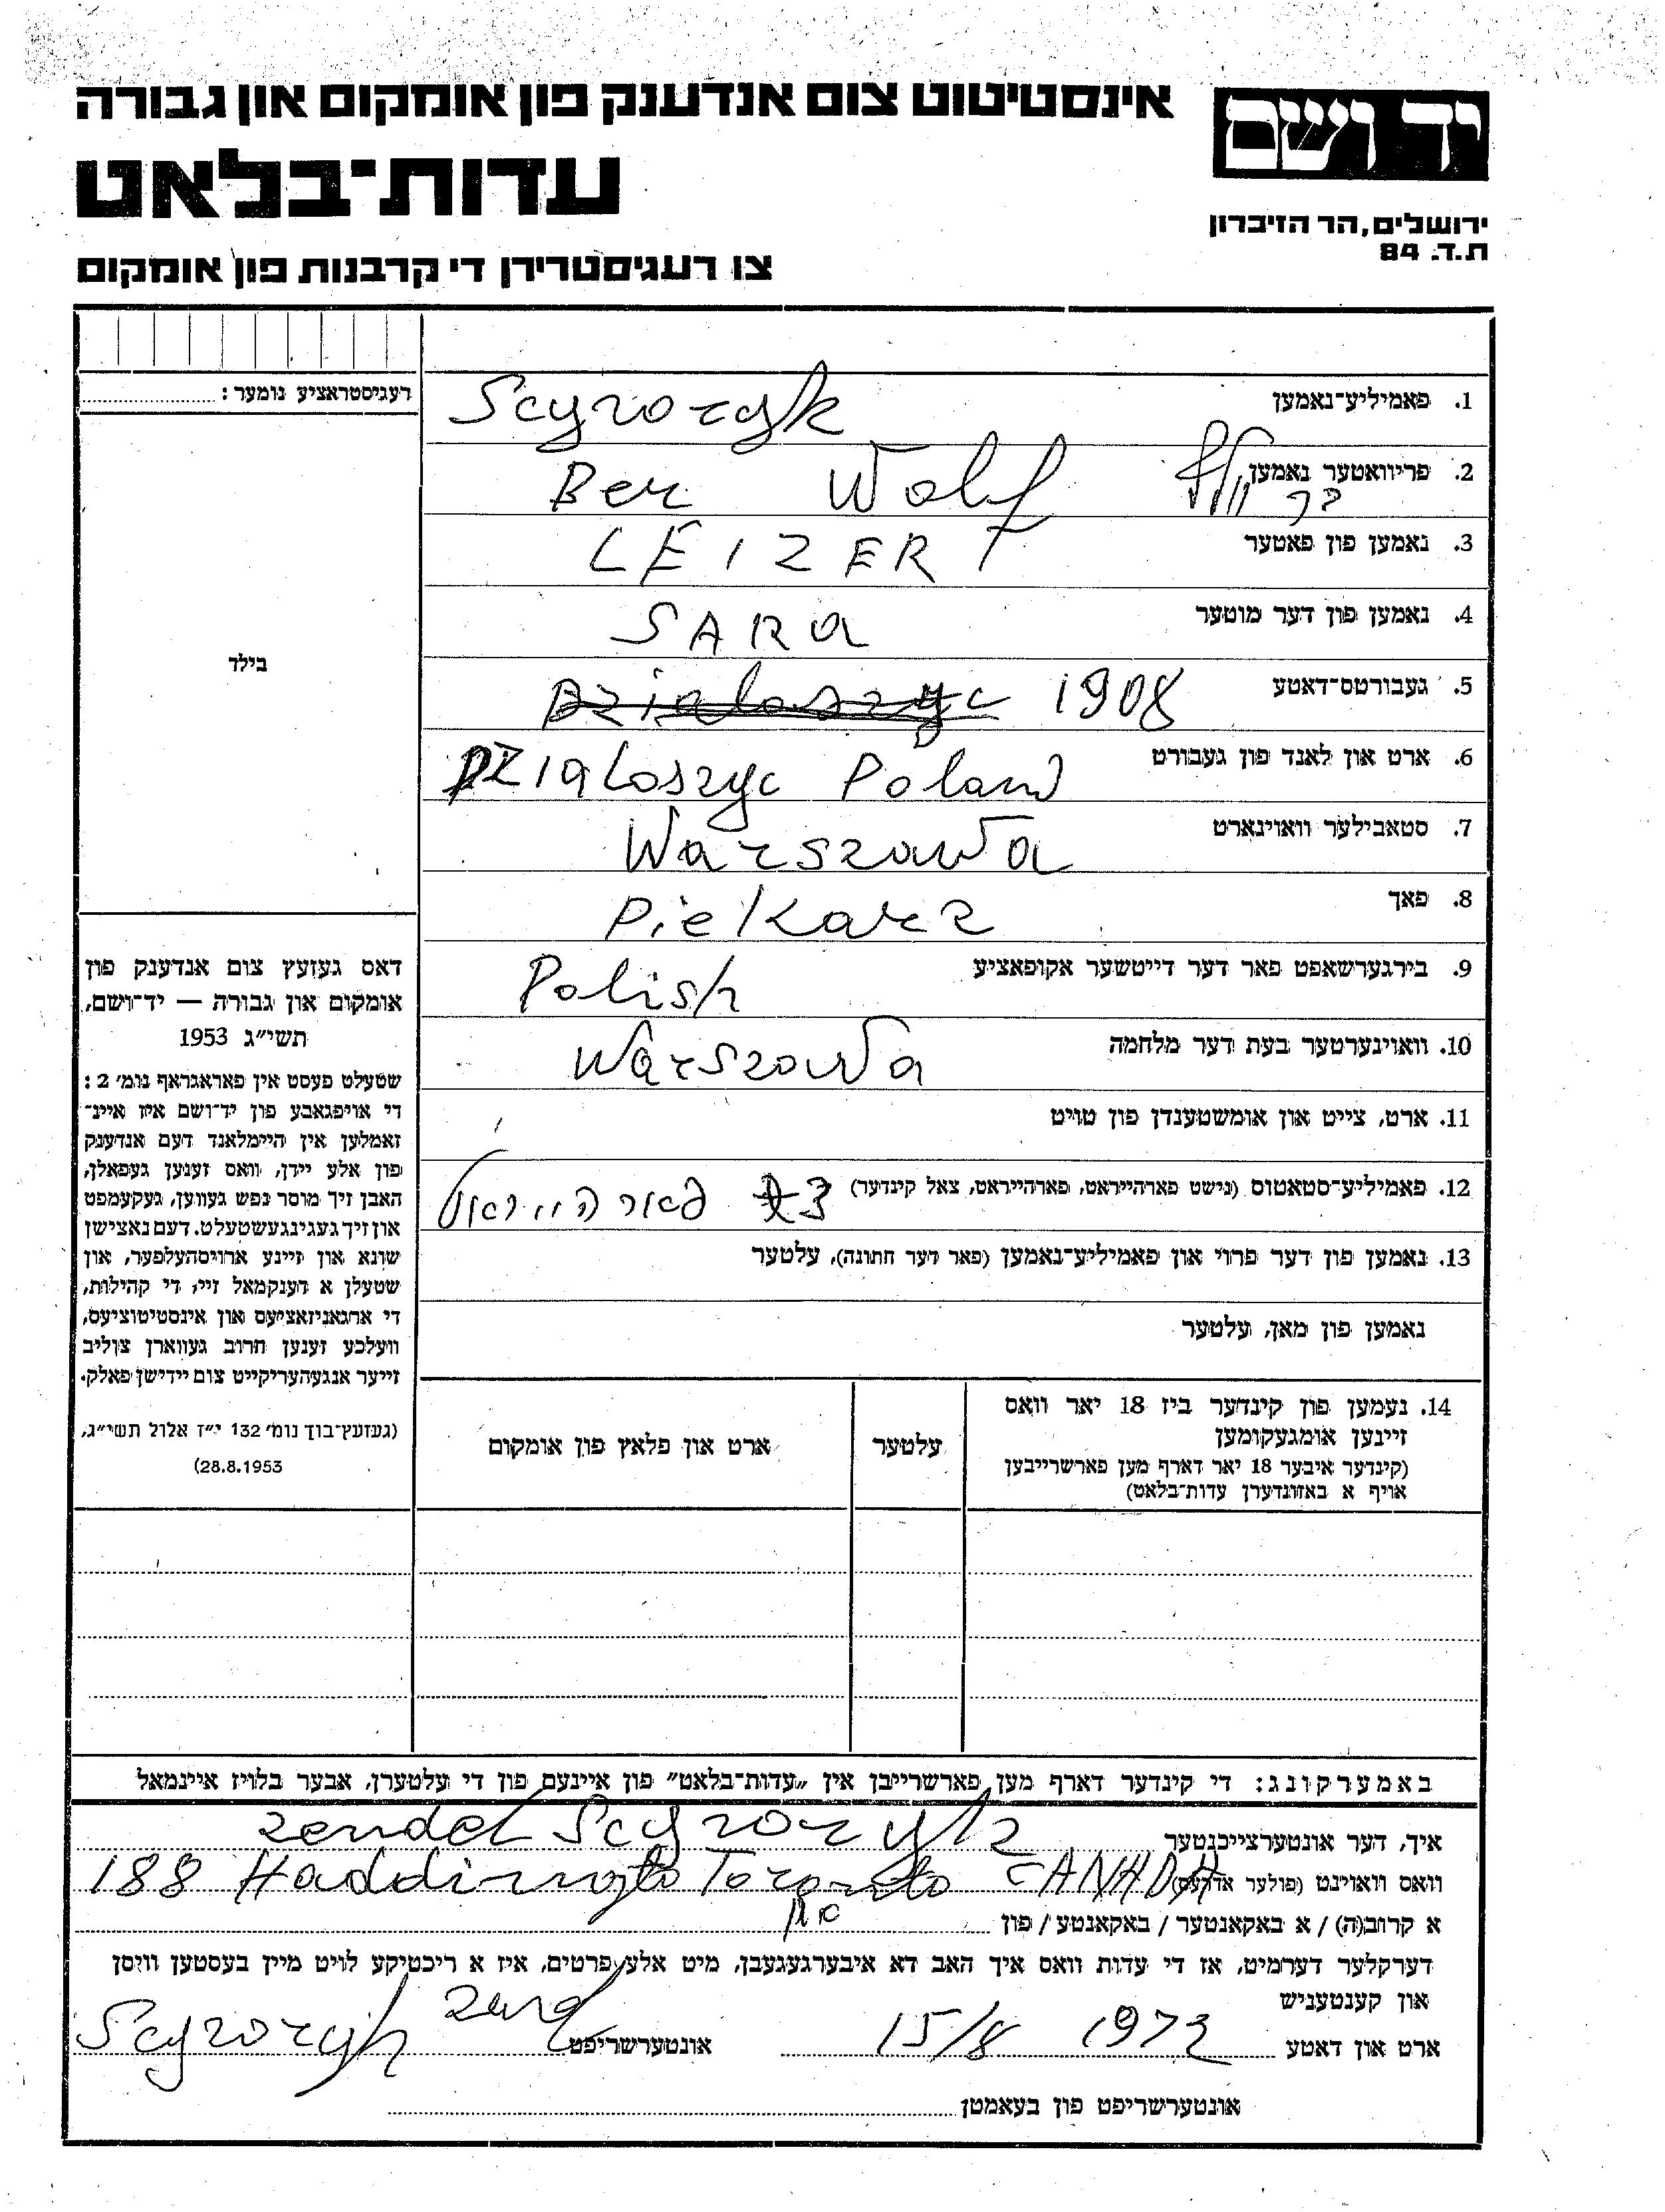 יד ושם
אינסטיטוט צום אנדענק פון אומקום און גבורה
עדות־בלאט
ירושלים, הר הזיכרון
ת.ד. 84
צו רעגיסטרירן די קרבנות פון אומקום
רעגיסטראציע נומער :
בילד
דאס געזעץ צום אנדענק פון
אומקום און גבורה — יד־ושם,
תשי״ג 1953
שטעלט פעסט אין פאראגראף נומ׳ 2 :
די אויפגאבע פון יד־ושם איז איינ־
זאמלען אין היימלאנד דעם אנדענק
פון אלע יידן, וואס זענען געפאלן,
האבן זיך מוסר נפש געווען, געקעמפט
און זיך געגינגעשטעלט. דעם נאצישן
שונא און זיינע ארויסהעלפער, און
שטעלן א דענקמאל זיי, די קהילות,
די ארגאניזאציעס און אינסטיטוציעס,
וועלכע זענען חרוב געווארן צוליב
זייער אנגעהעריקייט צום יידישן פאלק.
(געזעץ־בוך נומ׳ 132 י״ז אלול תשי״ג,
28.8.1953)
1. פאמיליע־נאמען Scyzoryk
2. פריוואטער נאמען בר וואלף Ber Wolf
3. נאמען פון פאטער LEIZER
4. נאמען פון דער מוטער SARA
5. געבורטס־דאטע Dzialoszyc 1908
6. ארט און לאנד פון געבורט DZIALoszyc Poland
7. סטאבילער וואוינארט Warszawa
8. פאך PieKarz
9. בירגערשאפט פאר דער דייטשער אקופאציע Polish
10. וואוינערטער בעת דער מלחמה Warszawa
11. ארט, צייט און אומשטענדן פון טויט
12. פאמיליע־סטאטוס (נישט פארהייראט, פארהייראט, צאל קינדער) 3 פארהייראט
13. נאמען פון דער פרוי און פאמיליע־נאמען (פאר דער חתונה), עלטער
נאמען פון מאן, עלטער
14. נעמען פון קינדער ביז 18 יאר וואס
זיינען אומגעקומען
(קינדער איבער 18 יאר דארף מען פארשרייבן
אויף א באזונדערן עדות־בלאט)
עלטער
ארט און פלאץ פון אומקום
באמערקונג: די קינדער דארף מען פארשרייבן אין „עדות־בלאט״ פון איינעם פון די עלטערן, אבער בלויז איינמאל
איך, דער אונטערצייכנטער zendel Scyzoryk
וואס וואוינט (פולער אדרעס) 188 Haddington Toronto CANADA
א קרוב(ה) / א באקאנטער / באקאנטע / פון
דערקלער דערמיט, אז די עדות וואס איך האב דא איבערגעגעבן, מיט אלע פרטים, איז א ריכטיקע לויט מיין בעסטען וויסן
און קענטעניש
ארט און דאטע 15/8 1972 אונטערשריפט Scyzoryk
אונטערשריפט פון בעאמטן